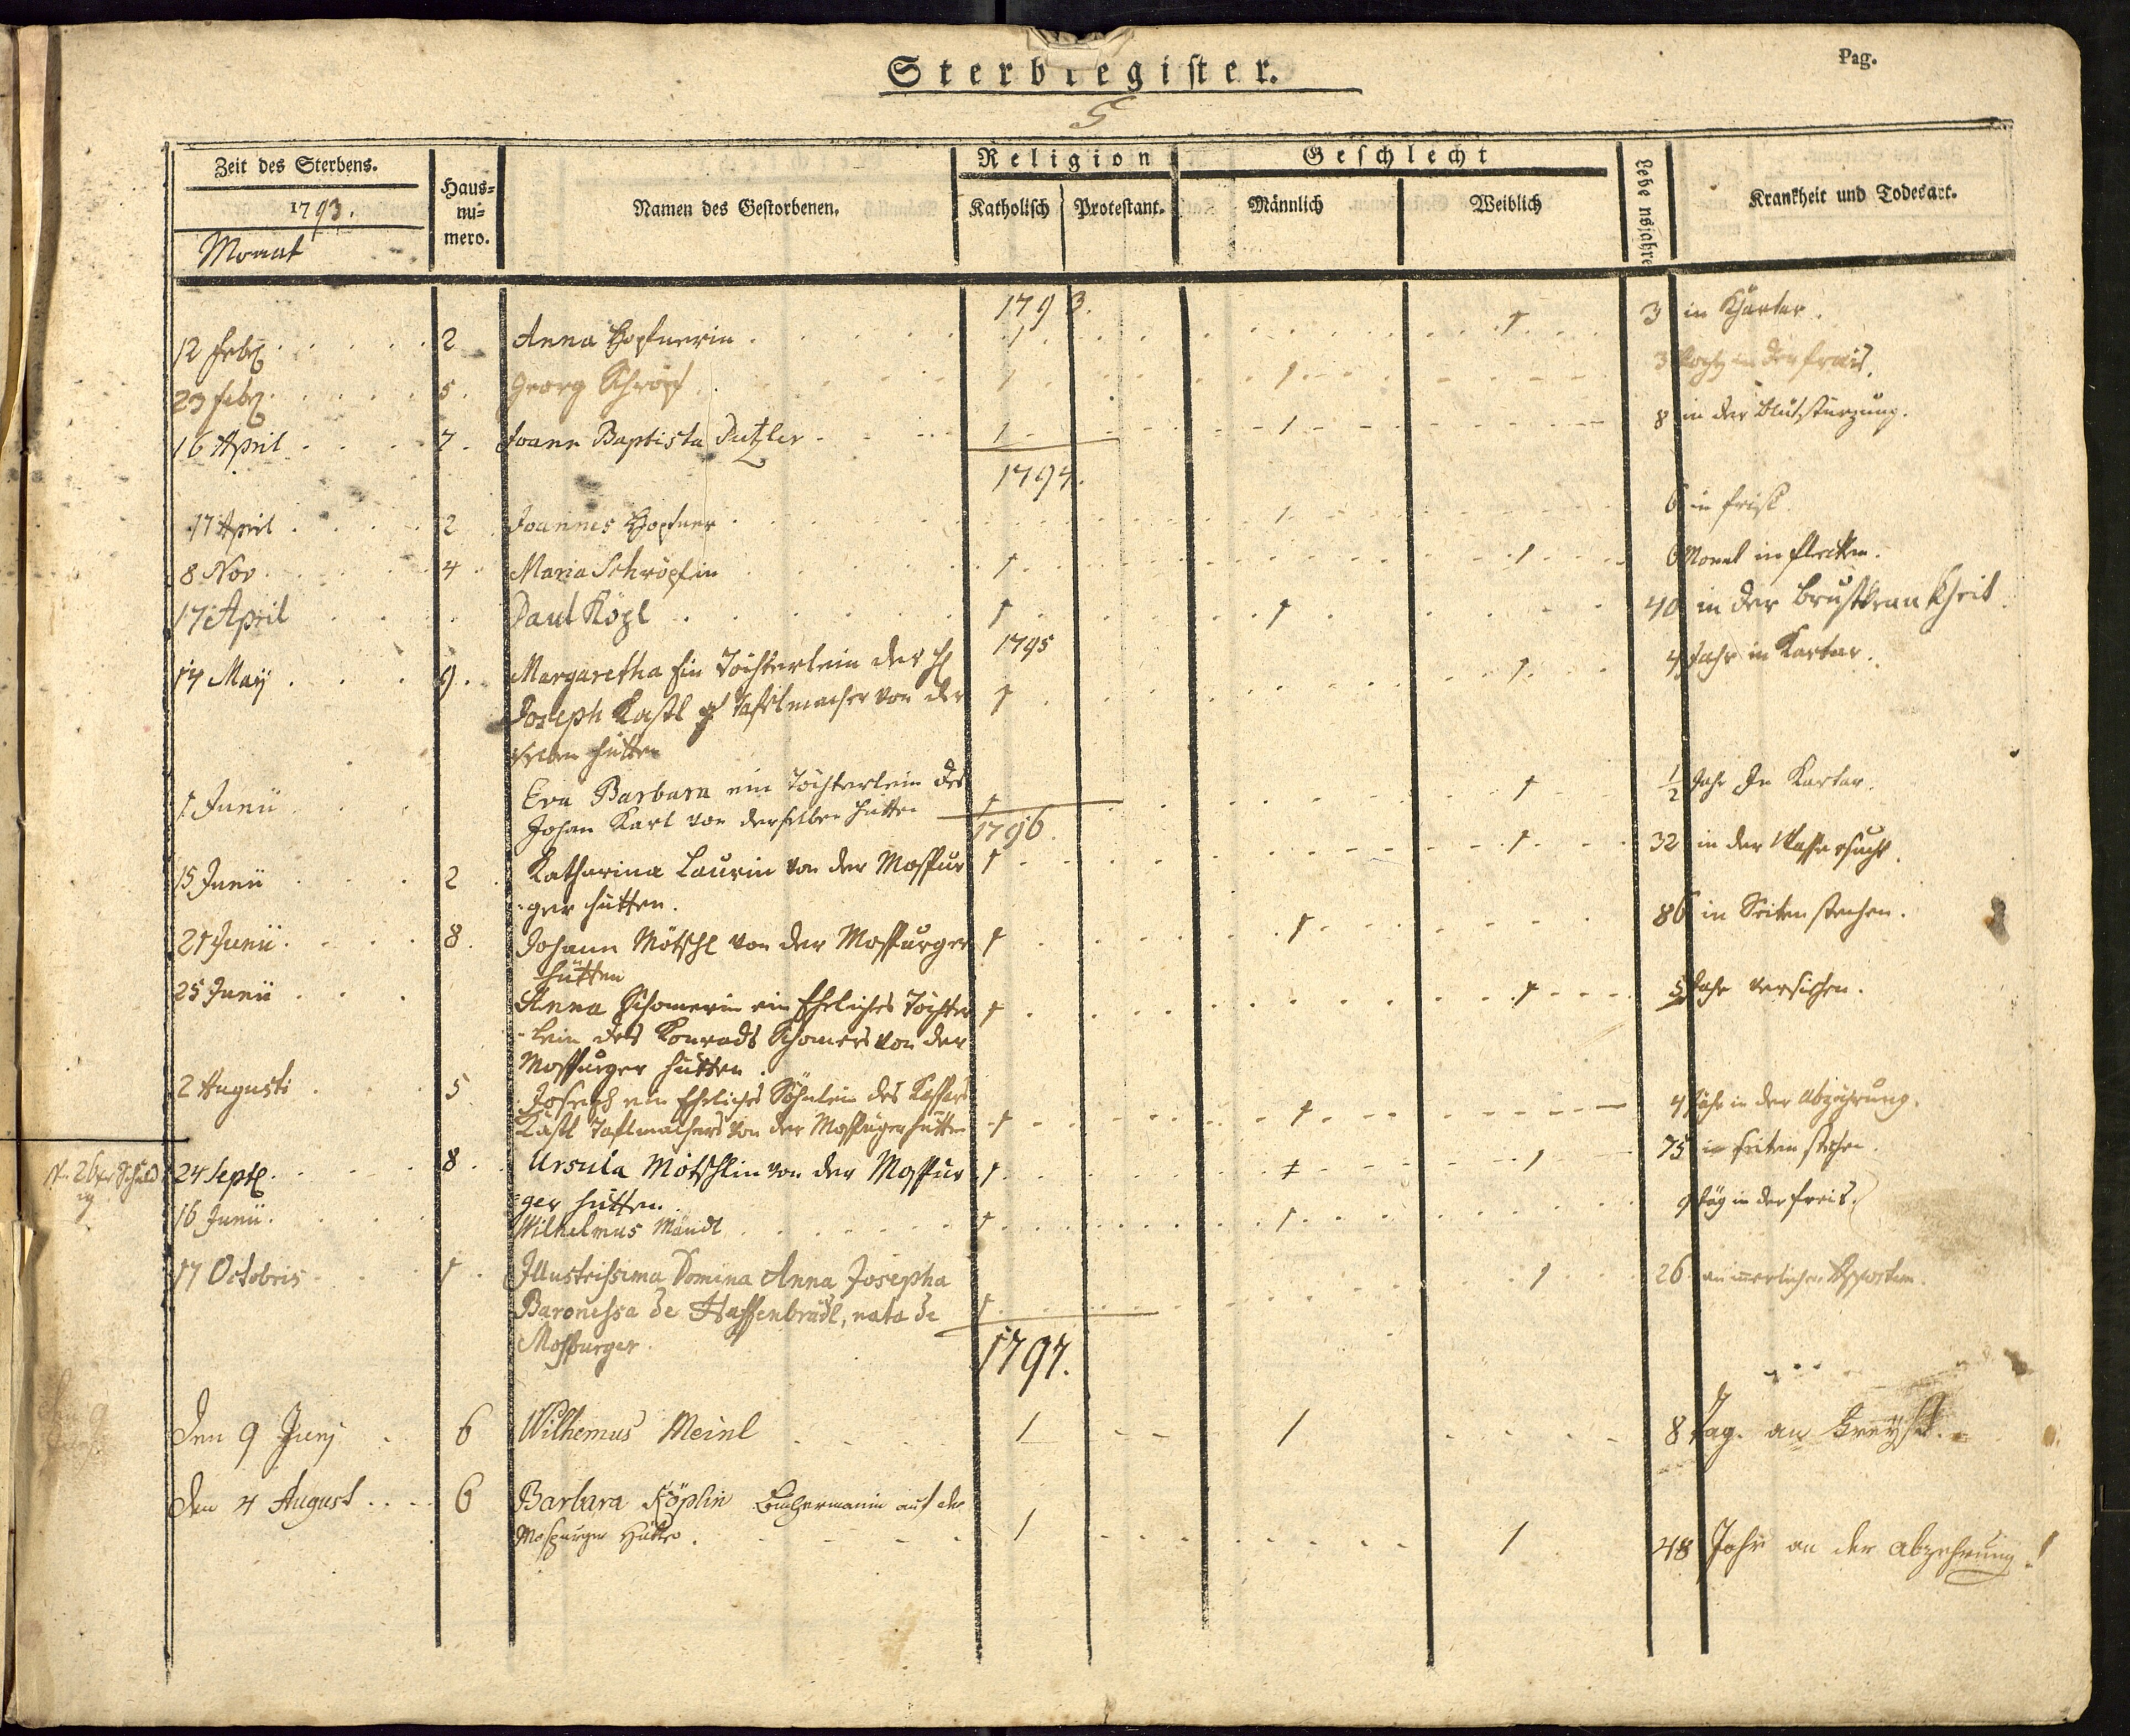 Sterbregister.
Pag.
5
Zeit des Sterbens.
1793.
Monat
Haus=
nu=
mero.
Namen des Gestorbenen.
Religion
Katholisch
Protestant.
Geschlecht
Männlich
Weiblich
Lebensjahre
Krankheit und Todesart.
1793.
12 Febr 2 Anna Hopfnerin 1 1 3 in
23 Febr 5. Georg Schröpf 1 1 3 in der frais.
16 April 7. Joann Baptista Putzler 1 1 8 in der Blutstürzung.
1794.
17 April 2 Joannes Hopfner 1 6 in
8 Nov 4 Maria Schröpfin 1 1 6 Monat in flecken.
17 April Paul Köpl 1 1 40 in der Brustkrankheit
1795
17 Maij 9. Margaretha Ein Töchterlein des 1 4 Jahr in Kartar.
Joseph Kastl Tafelmacher von der 1
selben Hütten
1 Junii Eva Barbara ein Töchterlein des 1 1/2 Jahr In Kartar.
Johan Karl von derselben Hütten 1
1796.
15 Junii 2 Katharina Laurin von der Mospur 1 1 32 in der Wassersucht.
=ger Hütten.
21 Junii 8. Johann Mötschl von der Mospurger 1 1 86 in Seitenstechen.
Hütten
25 Junii Anna Schomerin ein Eheliches Töchter 1 1 5 Jahr versichen.
=lein des Konrads Schomers von der
Mospurger Hütten.
2 Augusti 5 Joseph ein Eheliches Söhnlein des Kaspars
Kastl Taflmachers von der Mospurger Hütten 1 1 4 Jahr in der Abzehrung.
24 Sept 8. Ursula Mötschlin von der Mospur 1 1 75 in Seiten stechen.
=ger Hütten.
16 Junii Wilhelmus Mändl 1 1 9 täg in der freis.
17 Octobris 1. Illustrissima Domina Anna Josepha 1 26 an innerlichen
Baronessa de Haffenbrädl, nata de 1
Mospurger
1797.
Den 9 Junj 6 Wilhemus Meinl 1 1 8 Tag. an
Den 4 August 6 Barbara Köplin auf der
Mospurger Hütte. 1 1 48 Jahr an der Abzehrung.